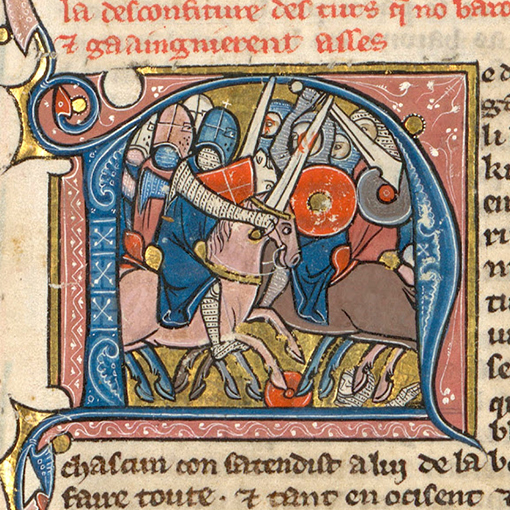 la desconfiture des turs q̄ no baro
⁊ gaaingnierent asses
e d
ga
li
k
en
ri
m
tu
u
se
q
b
chascun con satendist a lui de la b
faire toute · ⁊ tant en ocisent ⁊